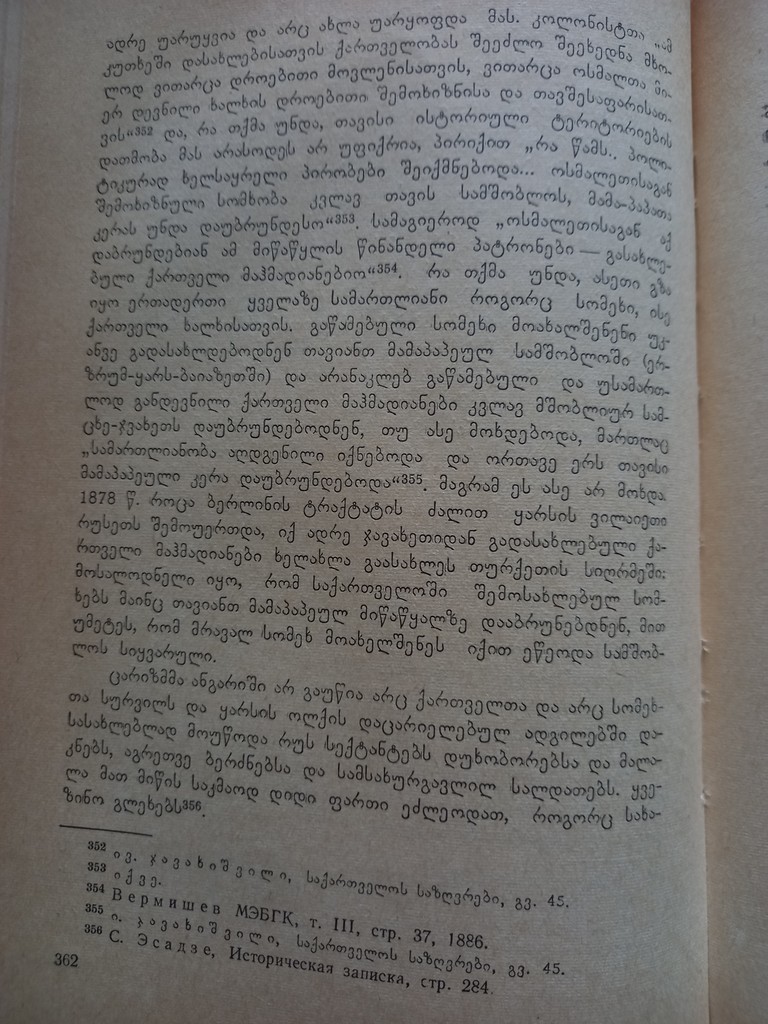 ადრე უარუყვია და არც ახლა უარყოფდა მას. კოლონისტთა „ამ
კუთხეში დასახლებისათვის ქართველობას შეეძლო შეეხედნა მხო-
ლოდ ვითარცა დროებითი მოვლენისათვის, ვითარცა ოსმალთა მი-
ერ დევნილი ხალხის დროებითი შემოხიზნისა და თავშესაფარისათ-
ვის“352 და, რა თქმა უნდა, თავისი ისტორიული ტერიტორიების
დათმობა მას არასოდეს არ უფიქრია, პირიქით „რა წამს.. პოლი-
ტიკურად ხელსაყრელი პირობები შეიქმნებოდა... ოსმალეთისაგან
შემოხიზნული სომხობა კვლავ თავის სამშობლოს, მამა-პაპათა
კერას უნდა დაუბრუნდესო“353. სამაგიეროდ „ოსმალეთისაგან აქ
დაბრუნდებიან ამ მიწაწყლის წინანდელი პატრონები — გასახლე-
ბული ქართველი მაჰმადიანებიო“354. რა თქმა უნდა, ასეთი გზა
იყო ერთადერთი ყველაზე სამართლიანი როგორც სომეხი, ისე
ქართველი ხალხისათვის. გაწამებული სომეხი მოახალშენენი უკ-
ანვე გადასახლდებოდნენ თავიანთ მამაპაპეულ სამშობლოში (ერ-
ზრუმ-ყარს-ბაიაზეთში) და არანაკლებ გაწამებული და უსამართ-
ლოდ განდევნილი ქართველი მაჰმადიანები კვლავ მშობლიურ სამ-
ცხე-ჯვახეთს დაუბრუნდებოდნენ, თუ ასე მოხდებოდა, მართლაც
„სამართლიანობა აღდგენილი იქნებოდა და ორთავე ერს თავისი
მამაპაპეული კერა დაუბრუნდებოდა“355. მაგრამ ეს ასე არ მოხდა.
1878 წ. როცა ბერლინის ტრაქტატის ძალით ყარსის ვილაიეთი
რუსეთს შემოუერთდა, იქ ადრე ჯავახეთიდან გადასახლებული ქა-
რთველი მაჰმადიანები ხელახლა გაასახლეს თურქეთის სიღრმეში:
მოსალოდნელი იყო, რომ საქართველოში შემოსახლებულ სომ-
ხებს მაინც თავიანთ მამაპაპეულ მიწაწყალზე დააბრუნებდნენ, მით
უმეტეს, რომ მრავალ სომეხ მოახელშენეს იქით ეწეოდა სამშობ-
ლოს სიყვარული.
ცარიზმმა ანგარიში არ გაუწია არც ქართველთა და არც სომეხ-
თა სურვილს და ყარსის ოლქის დაცარიელებულ ადგილებში და-
სასახლებლად მოუწოდა რუს სექტანტებს დუხობორებსა და მალა-
კნებს, აგრეთვე ბერძნებსა და სამსახურგავლილ სალდათებს. ყვე-
ლა მათ მიწის საკმაოდ დიდი ფართი ეძლეოდათ, როგორც სახა-
ზინო გლეხებს356.
352 ივ. ჯავახიშვილი, საქართველოს საზღვრები, გვ. 45.
353 იქვე.
354 Вермишев МЭБГК, т. III, стр. 37, 1886.
355 ი. ჯავახიშვილი, საქართველოს საზღვრები, გვ. 45.
356 С. Эсадзе, Историческая записка, стр. 284.
362